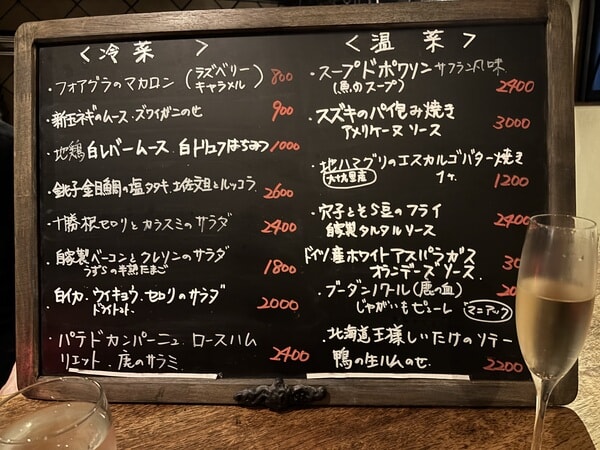 ＜冷菜＞
・フォアグラのマカロン（ラズベリー
キャラメル） 800
・新玉ネギのムース、ズワイガニのせ 900
・地鶏白レバームース、白トリュフはちみつ 1000
・銚子金目鯛の塩タタキ、土佐文旦とルッコラ 2600
・十勝根セロリとカラスミのサラダ 2400
・自家製ベーコンとクレソンのサラダ
うずらの半熟たまご 1800
・白イカ、ウイキョウ、セロリのサラダ
ドライトマト 2000
・パテドカンパーニュ、ロースハム
リエット、鹿のサラミ 2400
＜温菜＞
・スープドポワソン サフラン風味
（魚のスープ） 2400
・スズキのパイ包み焼き
アメリケーヌソース 3000
・地ハマグリのエスカルゴバター焼き
九十九里産 1ケ 1200
・穴子とそら豆のフライ
自家製タルタルソース 2400
・ドイツ産ホワイトアスパラガス
オランデーズソース
・ブーダンノワール（鹿の血）
じゃがいもピューレ マニアック
・北海道王様しいたけのソテー
鴨の生ハムのせ 2200